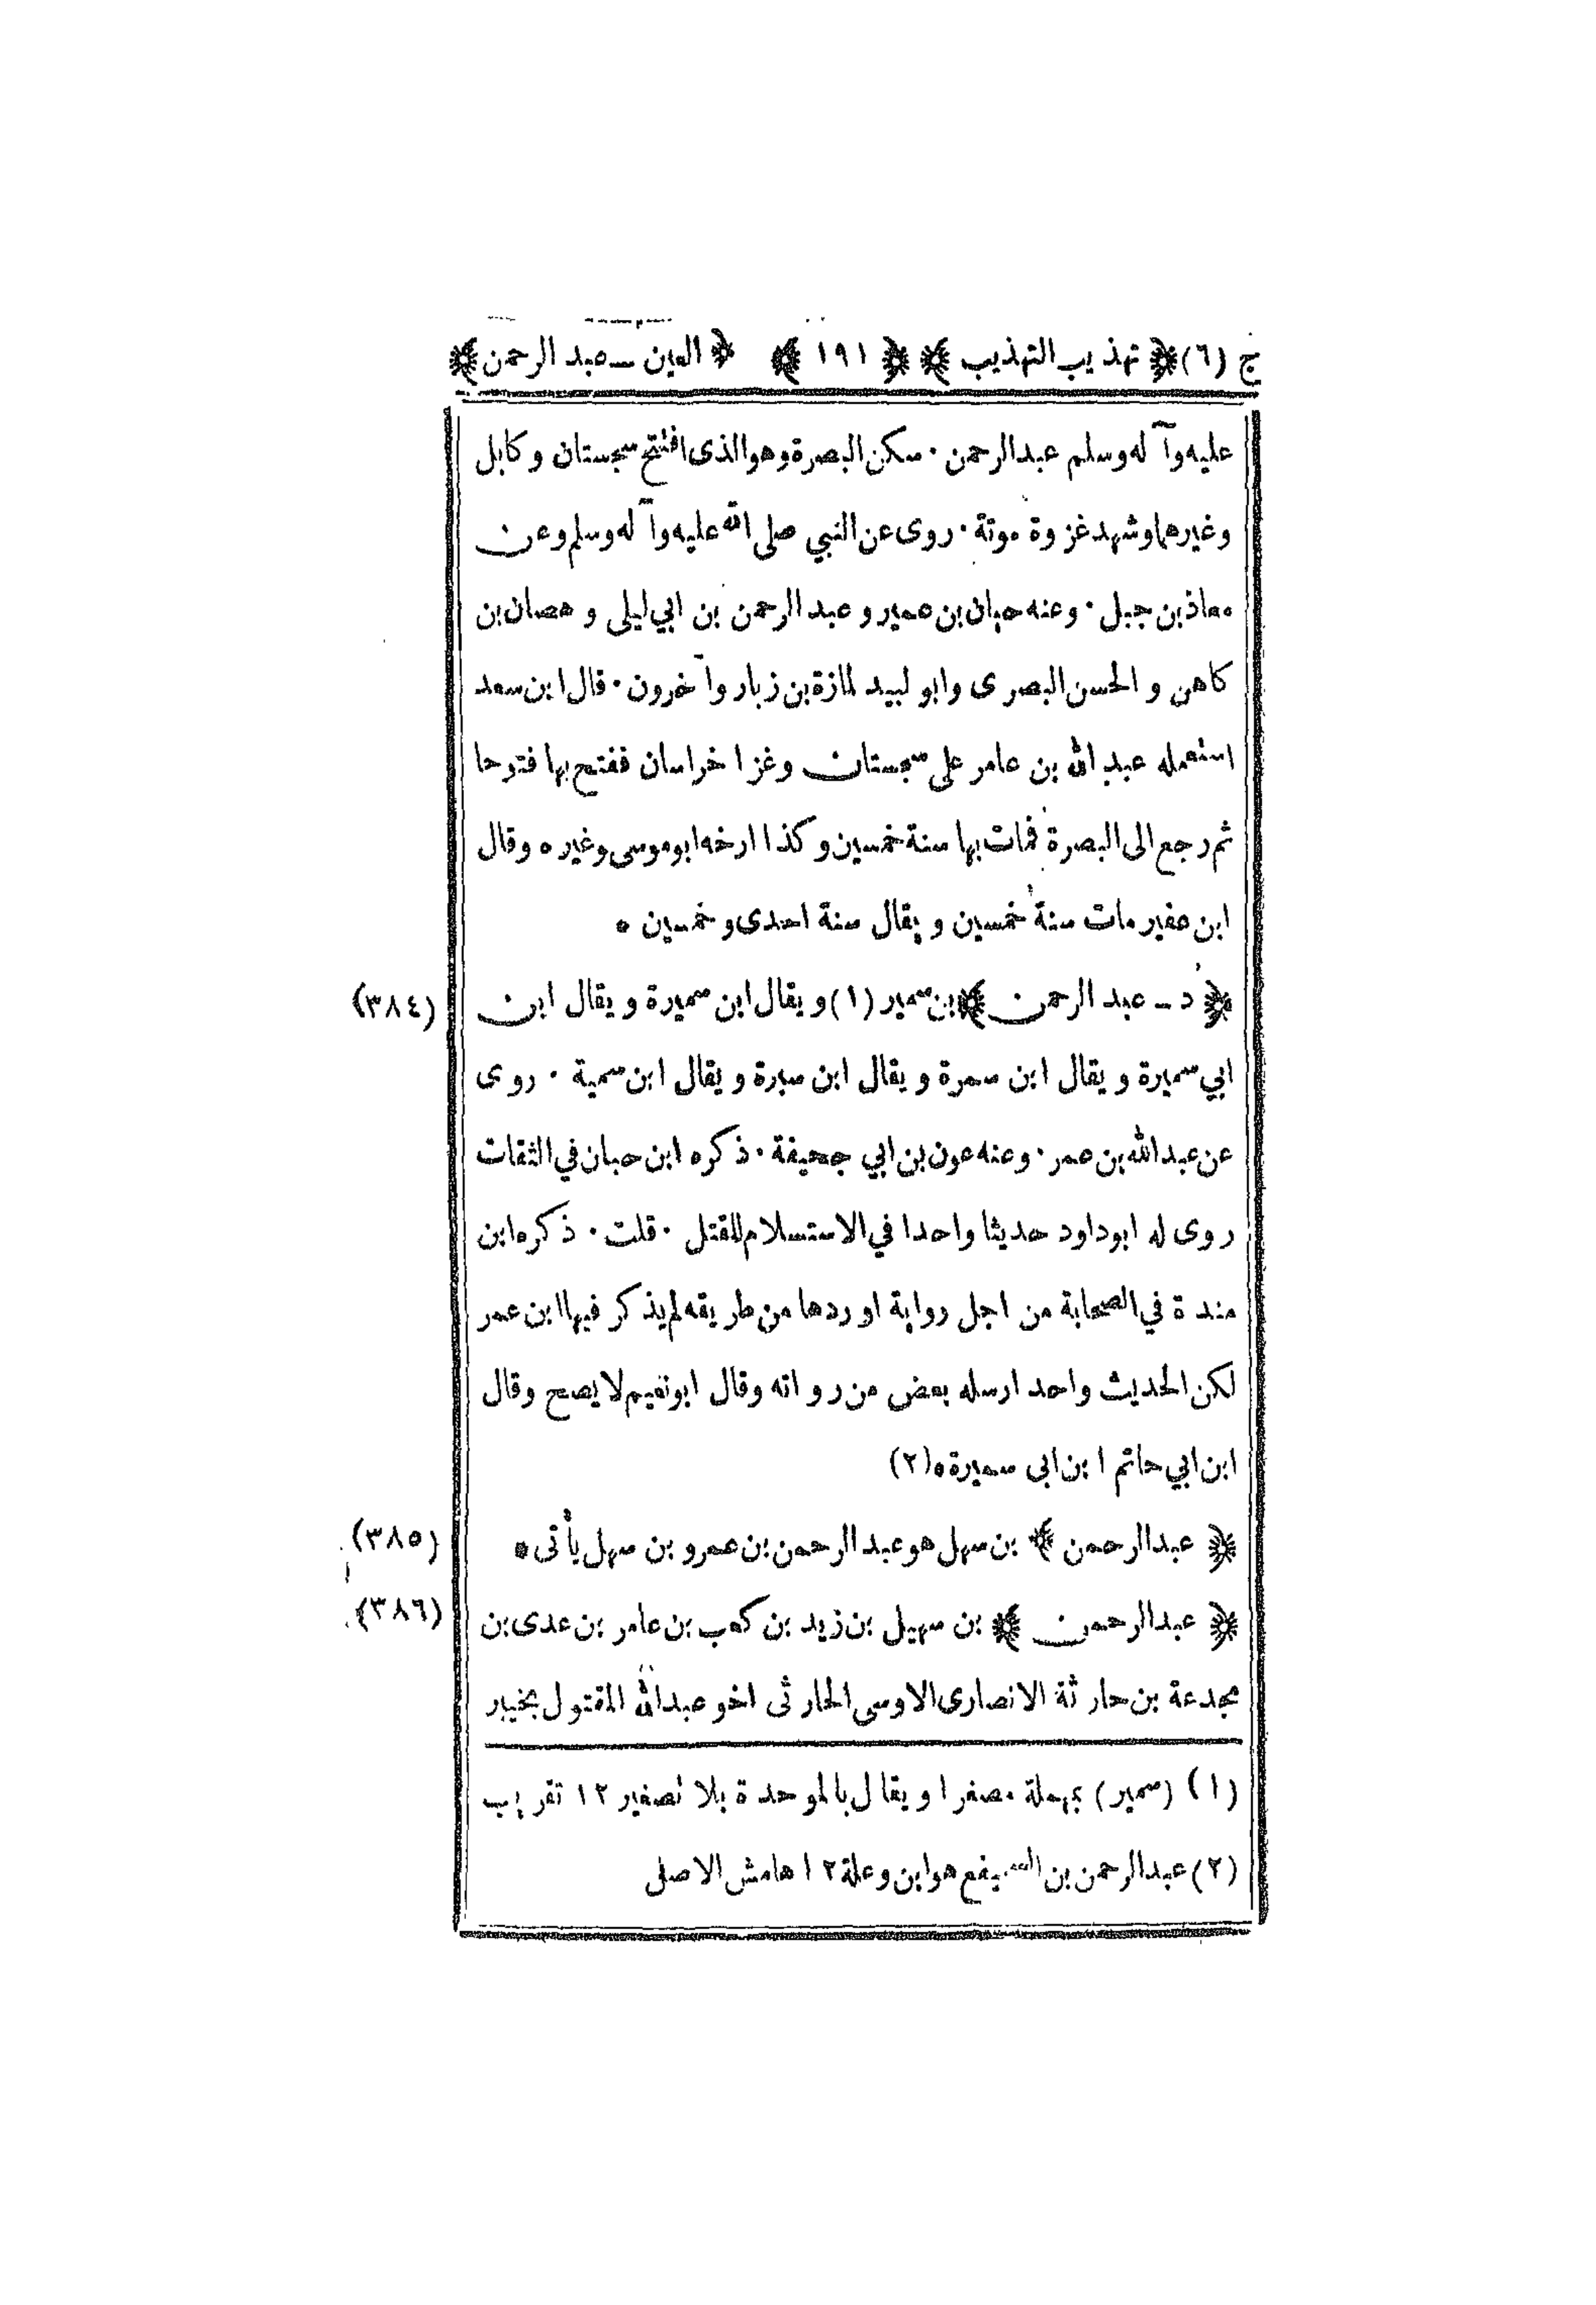 ج (٦) ﴿ تهذيب التهذيب ﴾ ﴿ ١٩١ ﴾ ﴿ العين ــ عبد الرحمن ﴾
عليه وآله وسلم عبد الرحمن ٠ سكن البصرة وهو الذى افتتح سجستان وكابل
وغيرهما وشهد غزوة موتة ٠ روى عن النبي صلى الله عليه وآله وسلم وعن
معاذ بن جبل ٠ وعنه حيان بن عمير و عبد الرحمن بن ابي ليلى و هصان بن
كاهن و الحسن البصرى وابو لبيد لمازة بن زبار وآخرون ٠ قال ابن سعد
استعمله عبد الله بن عامر على سجستان وغزا خراسان ففتح بها فتوحا
ثم رجع الى البصرة فمات بها سنة خمسين وكذا ارخه ابو موسى وغيره وقال
ابن عفير مات سنة خمسين ويقال سنة احدى وخمسين ٥
﴿ د ــ عبد الرحمن ﴾ بن سمير (١) ويقال ابن سميرة ويقال ابن (٣٨٤)
ابي سميرة ويقال ابن سمرة ويقال ابن سبرة ويقال ابن سمية ٠ روى
عن عبد الله بن عمر ٠ وعنه عون بن ابي جحيفة ٠ ذكره ابن حبان في الثقات
روى له ابوداود حديثا واحدا في الاستسلام للقتل ٠ قلت ٠ ذكره ابن
مندة في الصحابة من اجل رواية اوردها من طريقه لم يذكر فيها ابن عمر
لكن الحديث واحد ارسله بعض من رواته وقال ابو نعيم لا يصح وقال
ابن ابي حاتم ابن ابى سميرة ٥ (٢)
﴿ عبدالرحمن ﴾ بن سهل هو عبد الرحمن بن عمرو بن سهل يأتى ٥ (٣٨٥)
﴿ عبدالرحمن ﴾ بن سهيل بن زيد بن كعب بن عامر بن عدى بن (٣٨٦)
مجدعة بن حارثة الانصارى الاوسى الحارثى اخو عبد الله المقتول بخيبر
(١) (سمير) بمهملة مصغرا ويقال بالموحدة بلا تصغير ١٢ تقريب
(٢) عبد الرحمن بن السميفع هو ابن وعلة ١٢ هامش الاصل